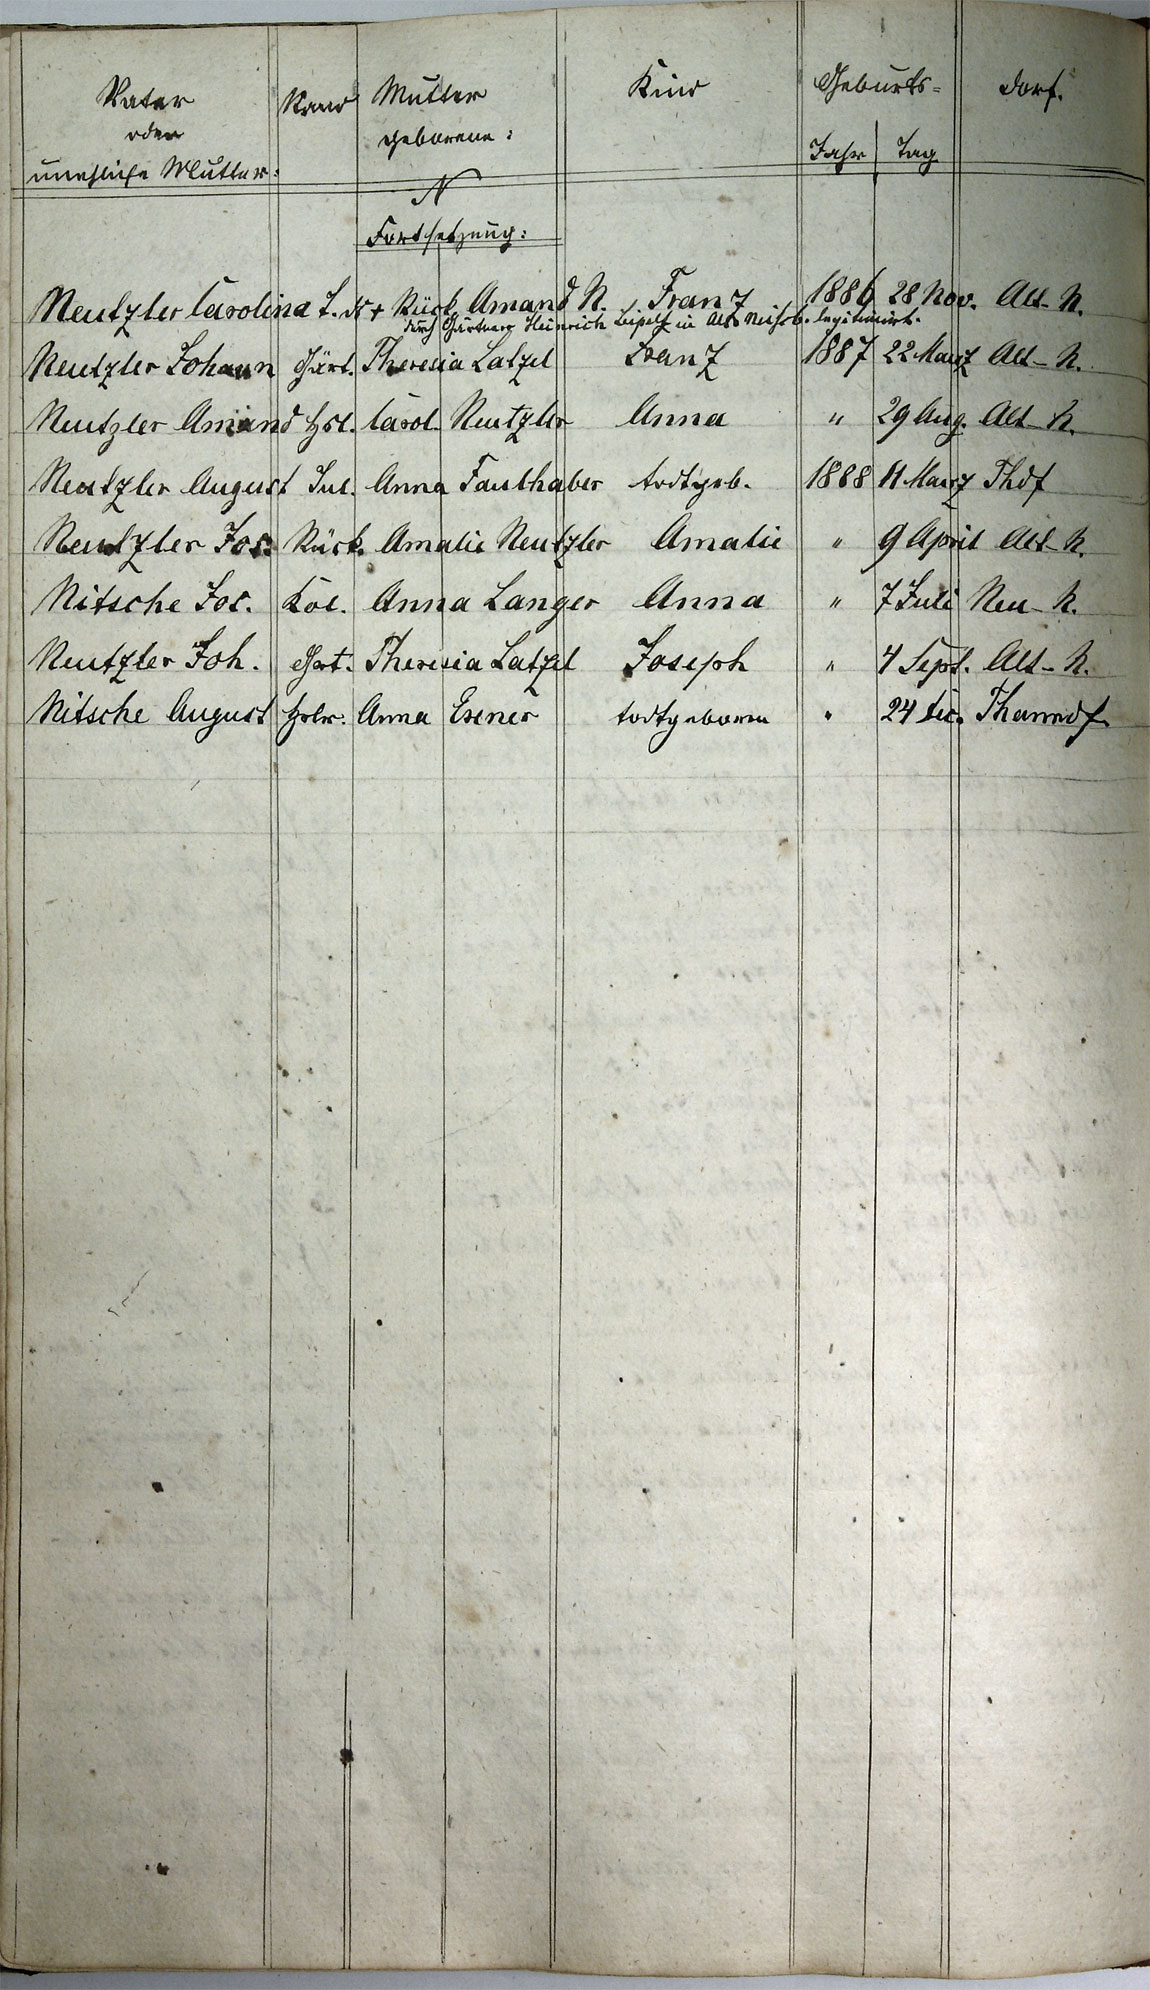 Vater Stand Mutter Kind Geburts= Dorf.
oder geborene:
uneheliche Mutter: Jahr Tag
N
Fortsetzung:
Neutzler Carolina T. d. + Rück. Amand N. Franz 1886 28 Nov. Alt-N.
durch Gärtner Heinrich in Alt legitimirt.
Neutzler Johann Gärt. Theresia Latzel Franz 1887 22 Maerz Alt-N.
Neutzler Amand Hsl. Carol. Neutzler Anna " 29 Aug. Alt-N.
Neutzler August Inl. Anna Faulhaber todtgeb. 1888 11 Maerz Thdf
Neutzler Jos. Rück. Amalie Neutzler Amalie " 9 April Alt-N.
Nitsche Jos. Col. Anna Langer Anna " 7 Juli Neu-N.
Neutzler Joh. Gärt. Theresia Latzel Joseph " 4 Sept. Alt-N.
Nitsche August Anna Exner todtgeboren " 24 Dec. Thanndf